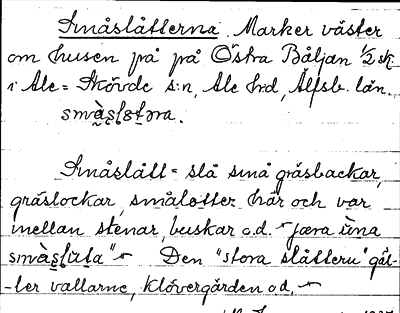 Småslåtterna Marker väster
om husen på på Östra Båljan 1/2 sk
i Ale = Skövde s:n, Ale h:d, Älfsb. län.
Småslått = slå små gräsbackar,
gräslockar, smålotter här och var
mellan stenar, buskar o.d.
Den "stora slåttern" gäl-
-ler vallarne, Klövergärden o.d.